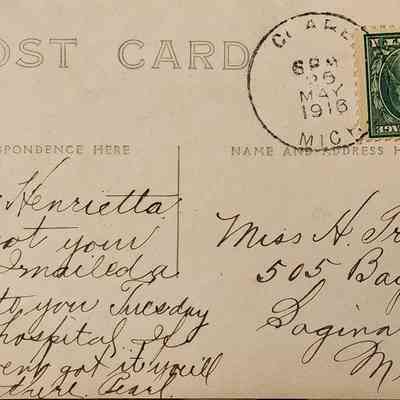 OST CARD
CLARE
6 PM
26
MAY
1916
MICH
SPONDENCE HERE
NAME AND ADDRESS H
Henrietta
got your
I mailed a
to you Tuesday
hospital. If
got it you'll
there. Pearl.
Miss H. Tr
505 Bay
Sagina
M